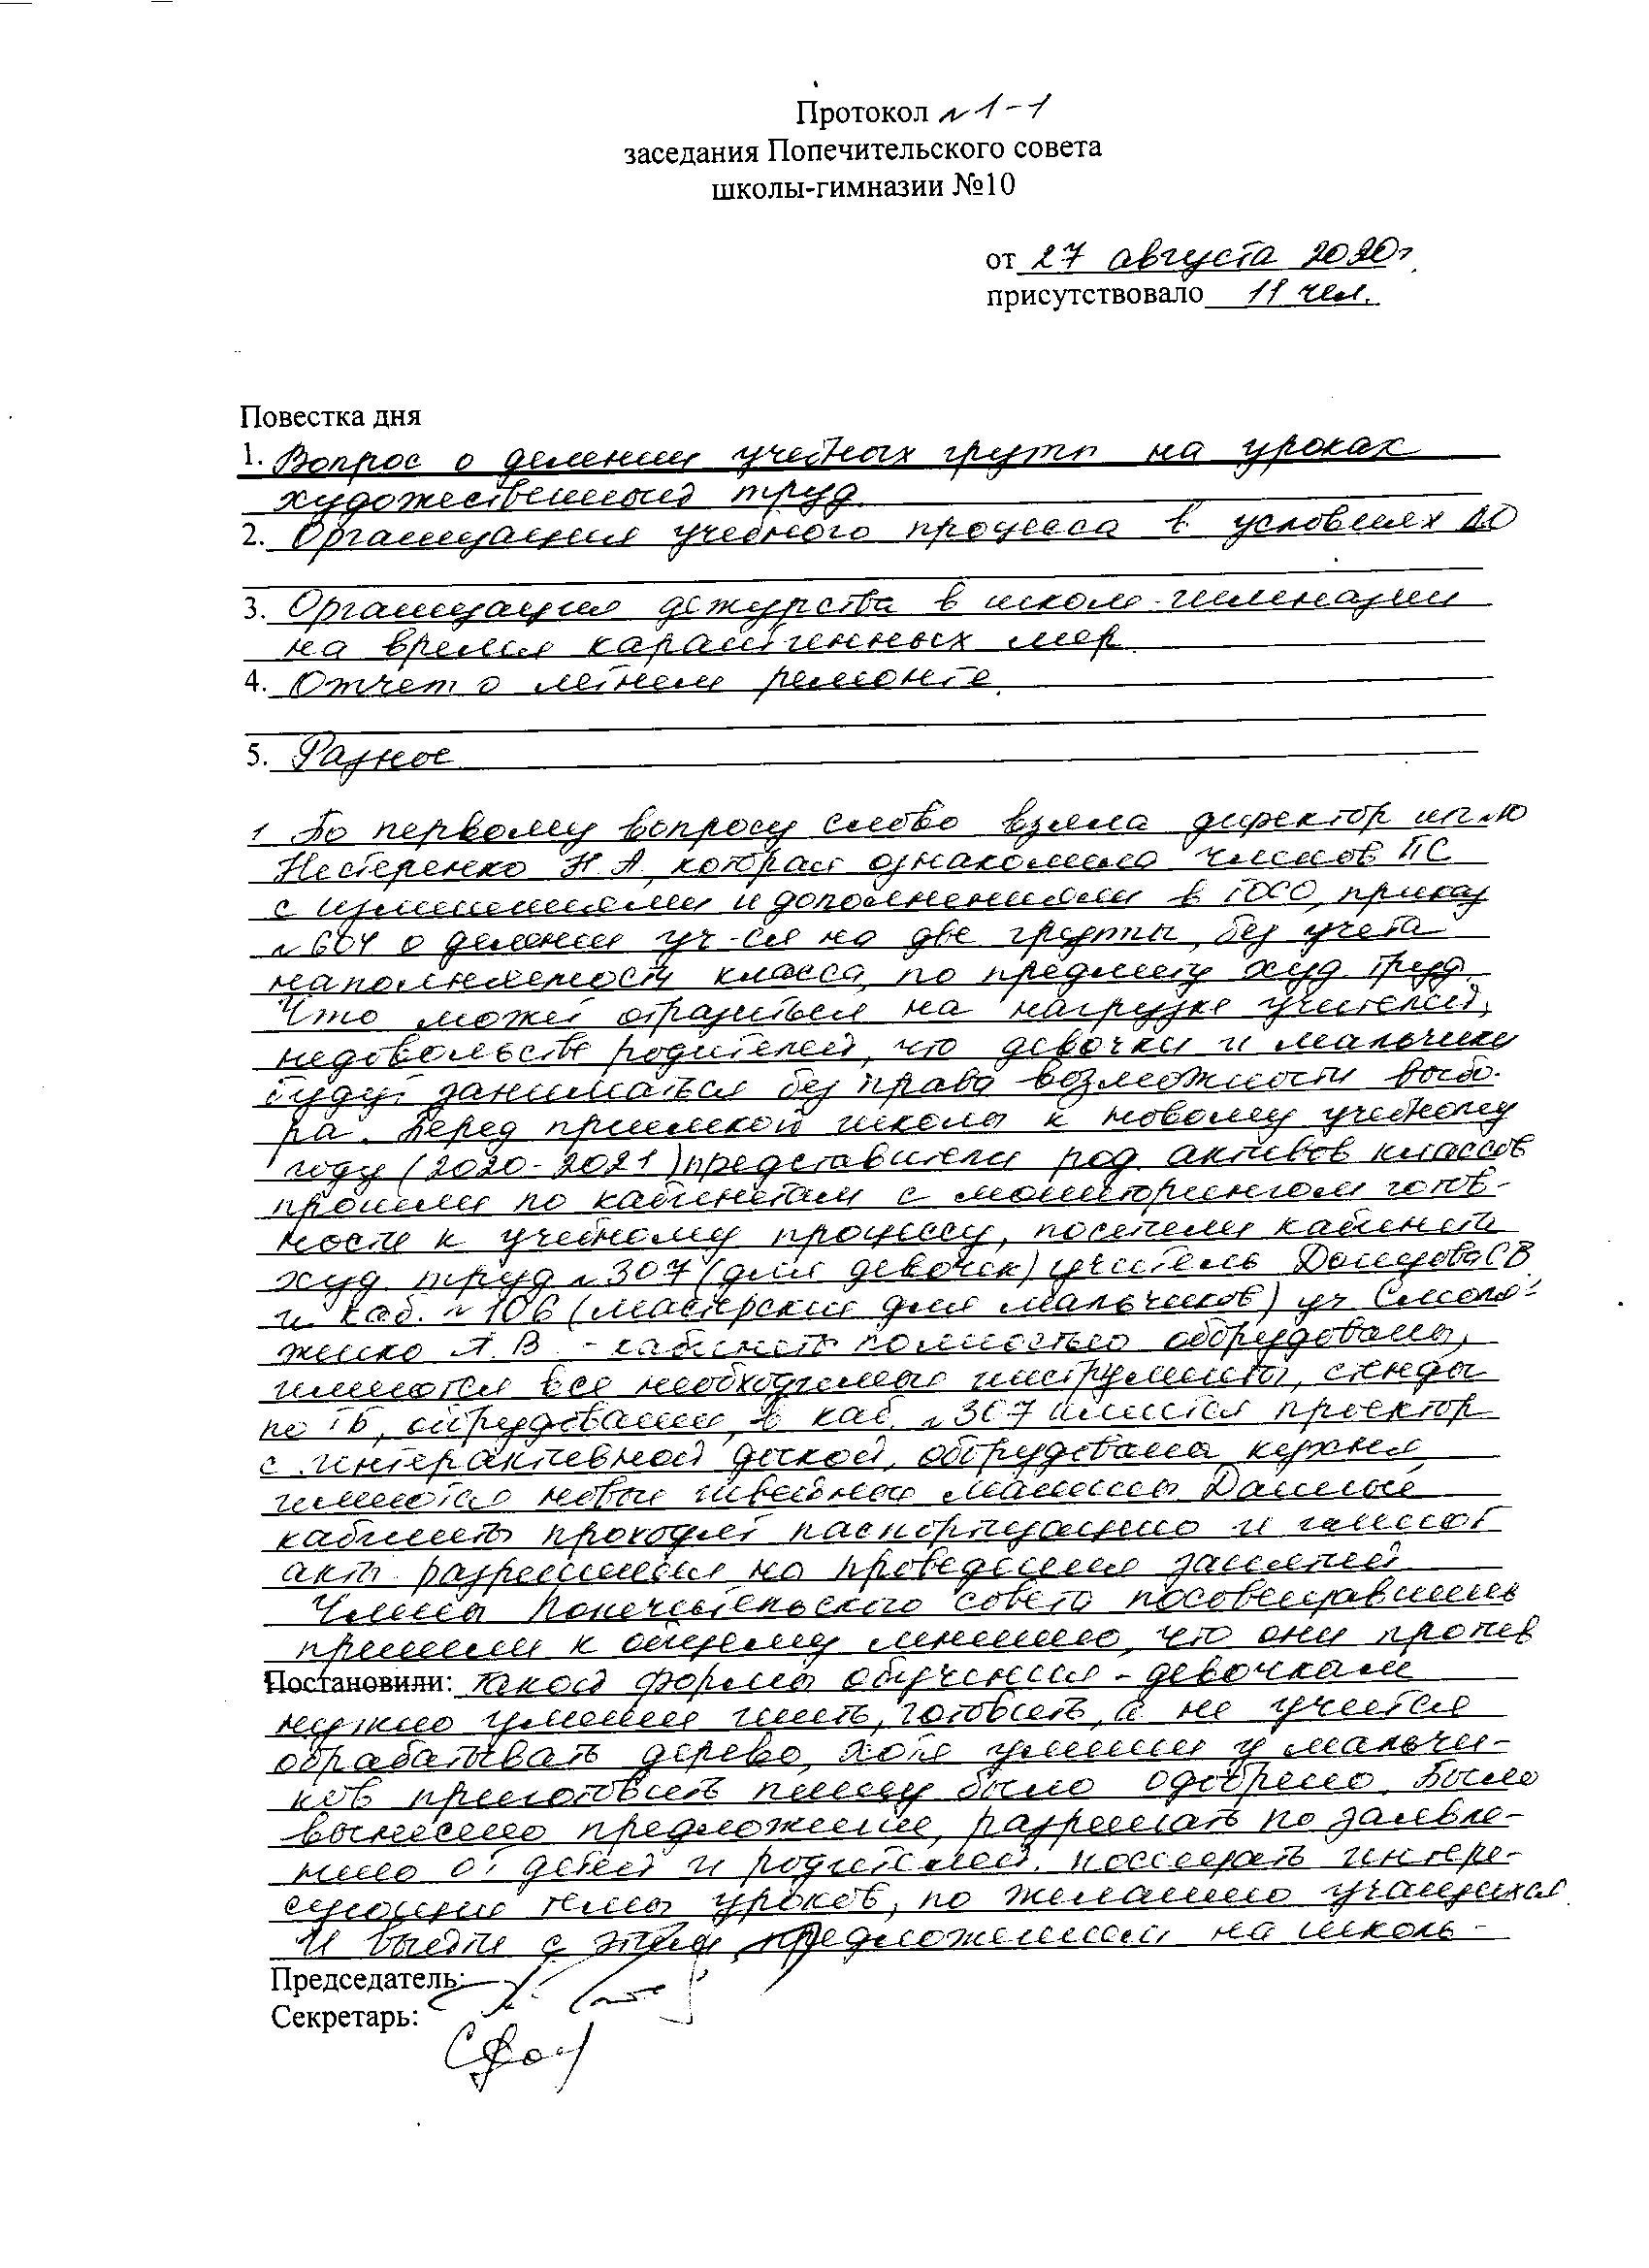 Протокол №1-1
заседания Попечительского совета
школы-гимназии №10
от 27 августа 2020г
присутствовало 11 чел.
Повестка дня
1. Вопрос о делении учебных групп на уроках
художественный труд.
2. Организация учебного процесса в условиях ДО
3. Организация дежурства в школе-гимназии
на время карантинных мер.
4. Отчет о летнем ремонте.
5. Разное
1 По первому вопросу слово взяла директор шг №10
Нестеренко Н.А, которая ознакомила членов ПС
с изменениями и дополнениями в ГОСО, приказ
№604 о делении уч-ся на две группы, без учета
наполняемости класса, по предмету худ. труд.
Что может отразиться на нагрузке учителей,
недовольстве родителей, что девочки и мальчики
будут заниматься без права возможности выбо-
ра. Перед приемкой школы к новому учебному
году (2020-2021) представители род. активов классов
прошли по кабинетам с мониторингом готов-
ности к учебному процессу, посетили кабинеты
худ. труд №307 (для девочек) учитель СВ
и каб. №106 (мастерские для мальчиков) уч
А.В. - кабинеты полностью оборудованы,
имеются все необходимые инструменты, стенды
по ТБ, оборудование, в каб. №307 имеется проектор
с интерактивной доской, оборудована кухня,
имеются новые швейные машины Данные
кабинеты проходят паспортизацию и имеют
акты разрешения на проведения занятий.
Члены Попечительского совета посовещавшись
пришли к общему мнению, что они против
Постановили: такой формы обучения - девочкам
нужно умение шить, готовить, а не учится
обрабатывать дерево, хотя умении у мальчи-
ков приготовить пищу было одобрено. Было
вынесено предложение, разрешать по заявле-
нию от детей и родителей посещать интере-
сующие темы уроков, по желанию учащихся
И выйти с этим предложением на школь-
Председатель:
Секретарь: